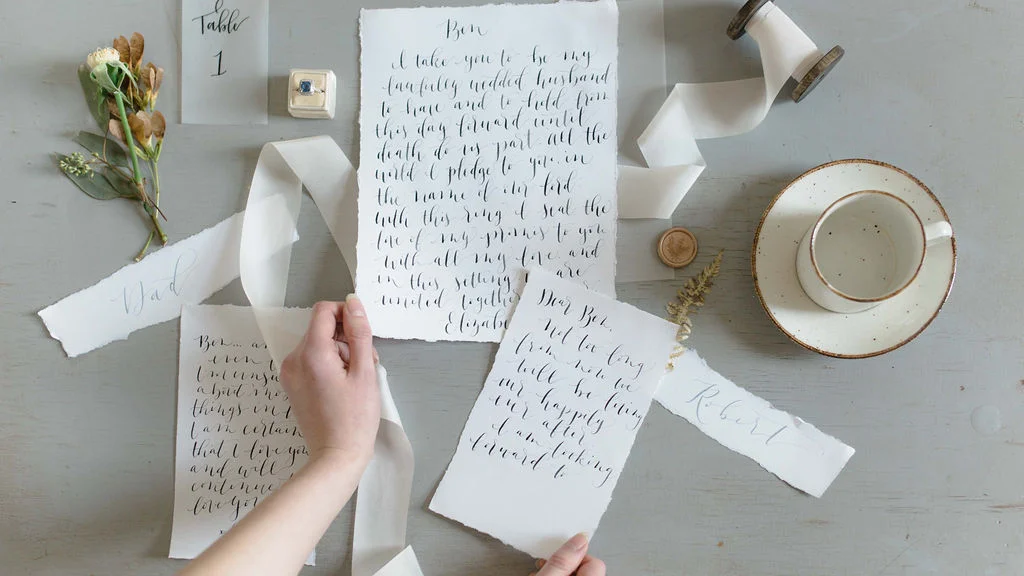 Table
1
Ben
I take you to be my
lawfully wedded husband
to have and to hold from
this day forward until
death do us part all the
world I pledge to you in
the name of our lord
with this ring I seal the
love of my promises to you
with all my love and
in this setting are
united together
Elizab
Dad
Ben
about
things in
I am certain
that I love you
and will
continue
love you
Dear Ben,
Not too long
from now we
will be living
our happily
ever after
I am looking
forward to
Robert